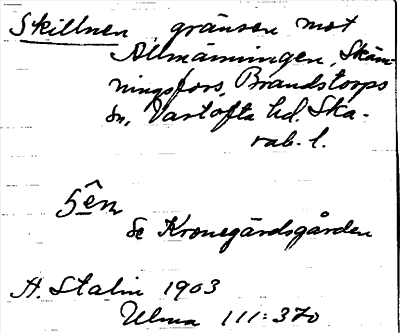 Skillnen, gränsen mot
Allmänningen, Skäm-
ningsfors, Brandstorps
sn, Vartofta hd. Ska-
rab. l.
5ên
Se Kronegårdsgården
H. Stalin 1903
Ulma 111:370